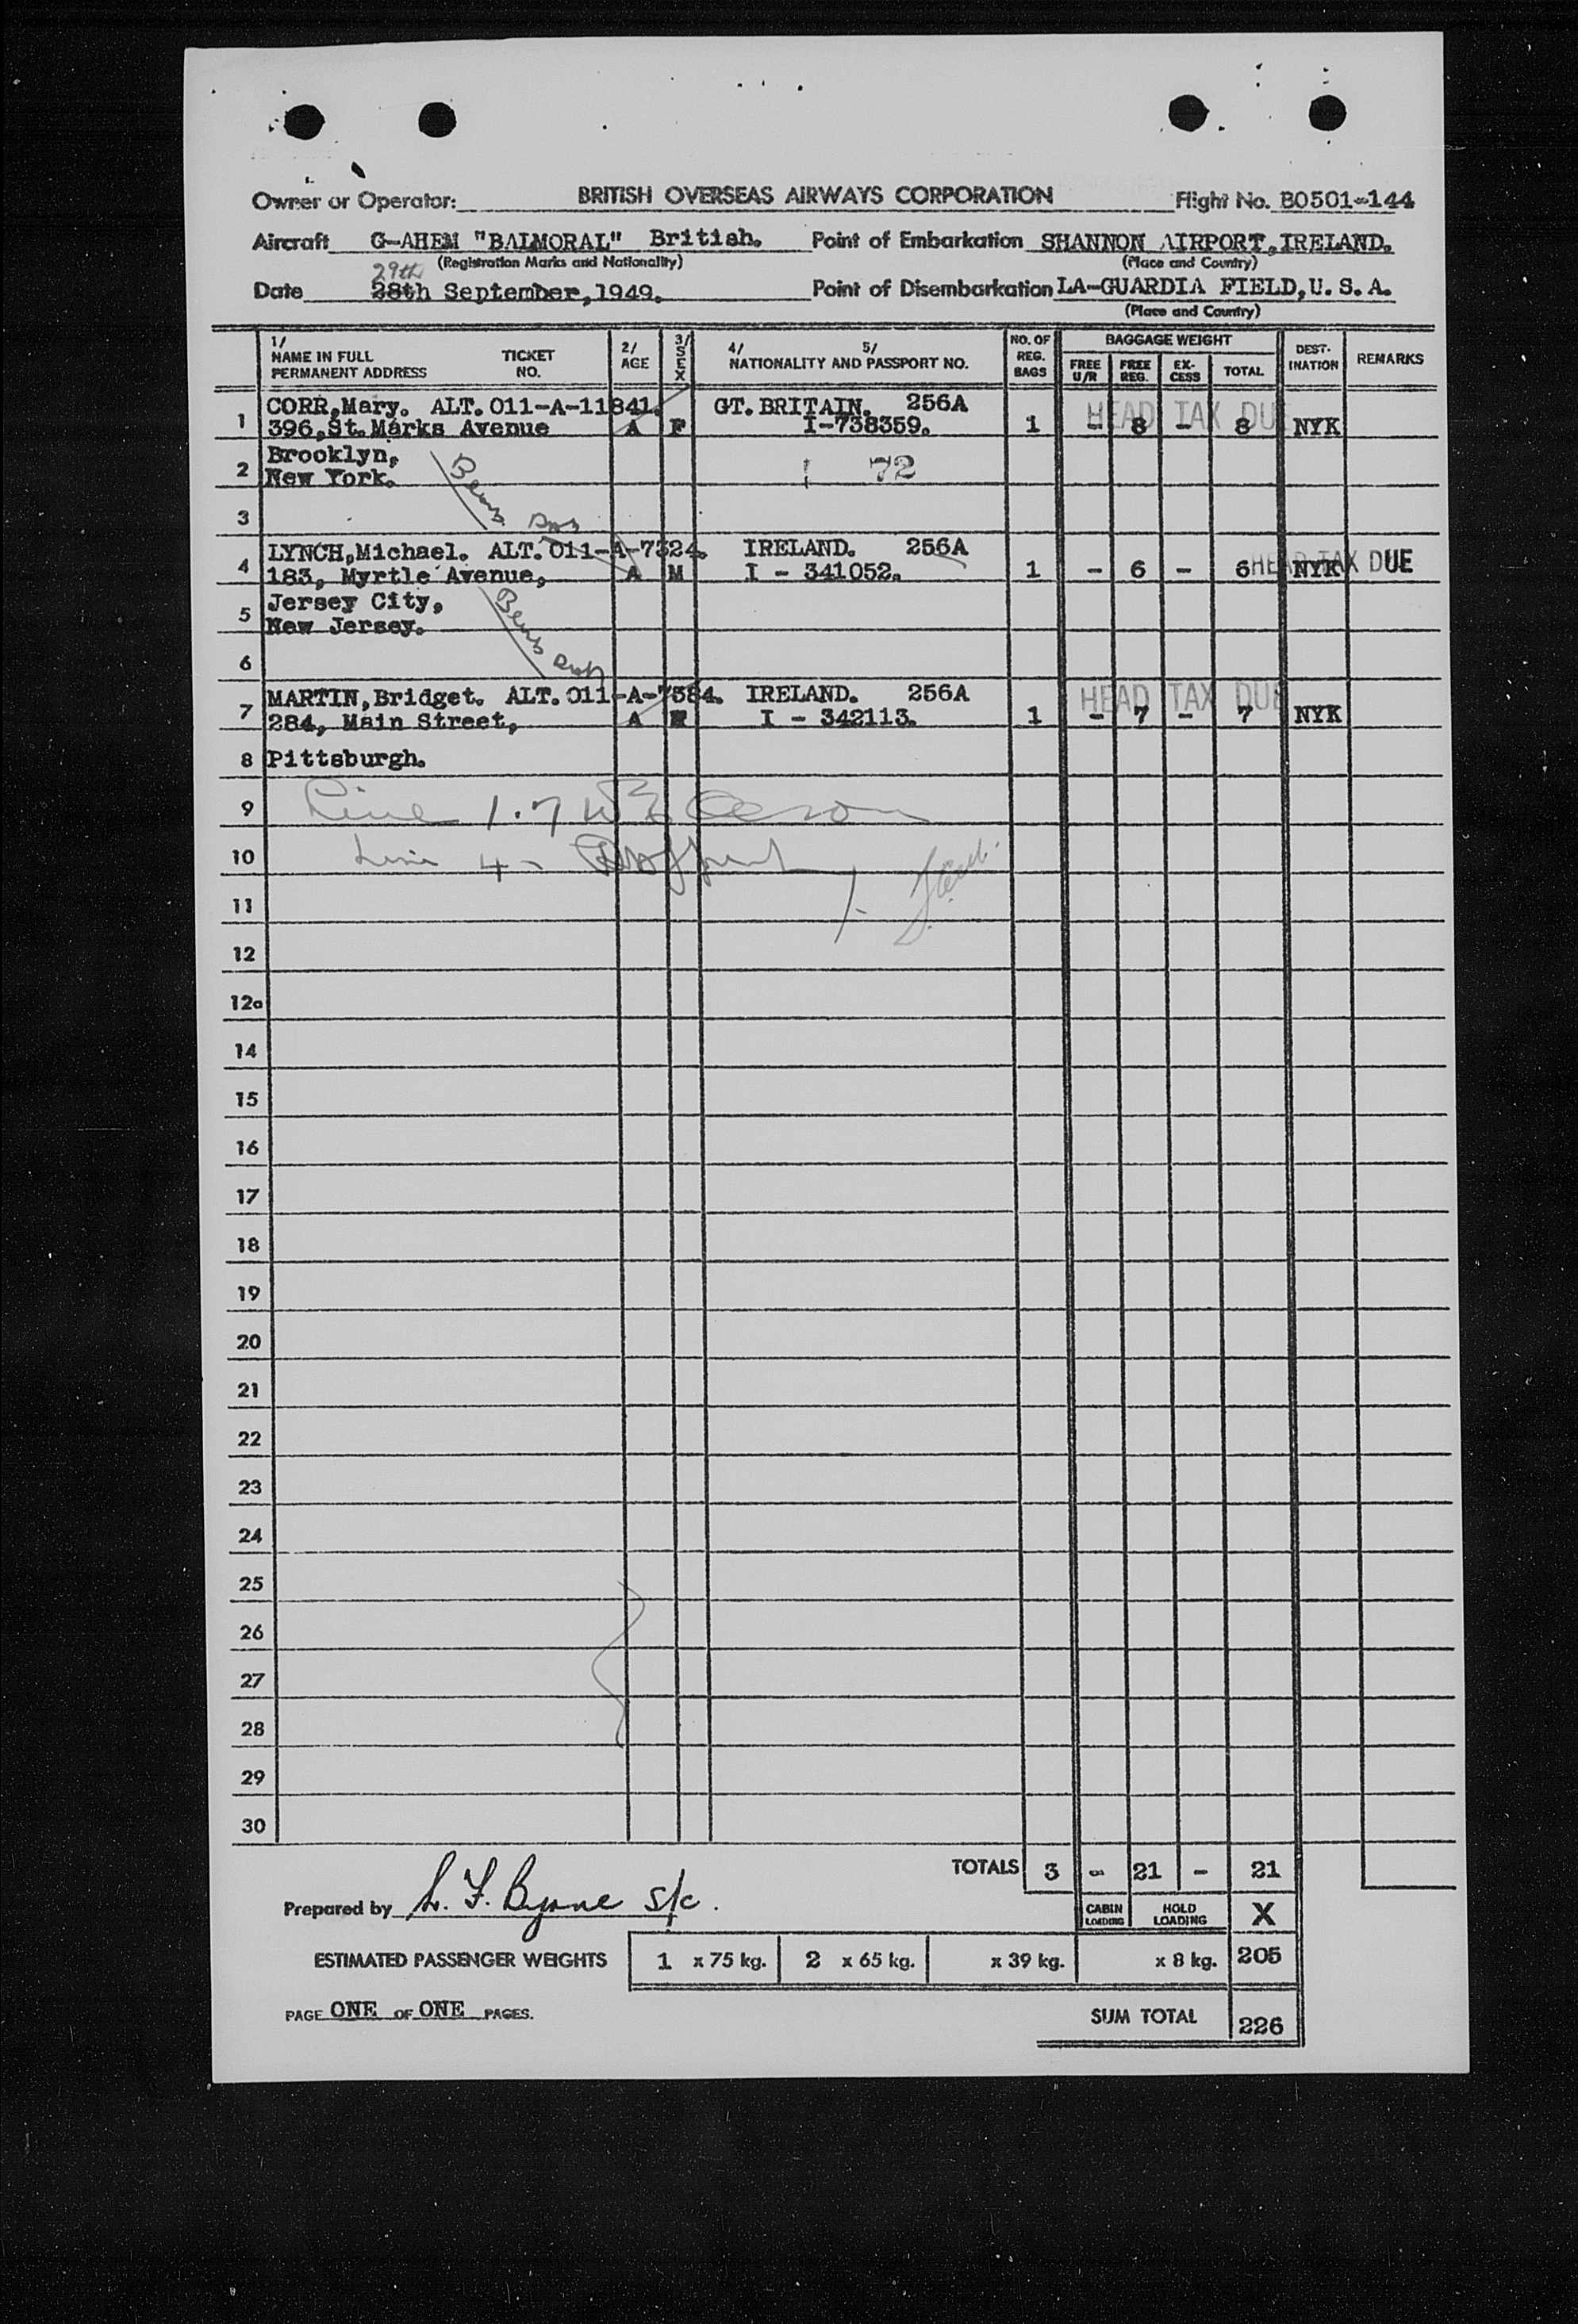 Owner or Operator: BRITISH OVERSEAS AIRWAYS CORPORATION Flight No. BO501-144
Aircraft G-AHEM "BALMORAL" British. Point of Embarkation SHANNON AIRPORT, IRELAND.
(Registration Marks and Nationality) (Place and Country)
29th
Date 28th September, 1949. Point of Disembarkation LA-GUARDIA FIELD, U.S.A.
(Place and Country)
1/ NAME IN FULL PERMANENT ADDRESS TICKET NO. 2/ AGE 3/ SEX 4/ 5/ NATIONALITY AND PASSPORT NO. NO. OF REG. BAGS BAGGAGE WEIGHT FREE U/R FREE REG. EX-CESS TOTAL DEST-INATION REMARKS
CORR, Mary. ALT. 011-A-11841. GT. BRITAIN. 256A HEAD TAX DUE
1 396, St. Marks Avenue A F I-738359. 1 - 8 - 8 NYK
Brooklyn,
2 New York. 72
3
LYNCH, Michael. ALT. 011-A-7324. IRELAND. 256A HEAD TAX DUE
4 183, Myrtle Avenue, A M I - 341052. 1 - 6 - 6 NYK
Jersey City,
5 New Jersey.
6
MARTIN, Bridget. ALT. 011-A-7384. IRELAND. 256A HEAD TAX DUE
7 284, Main Street, A F I - 342113. 1 - 7 - 7 NYK
8 Pittsburgh.
9 Line 1.7
10 Line 4 -
11
12
12a
14
15
16
17
18
19
20
21
22
23
24
25
26
27
28
29
30
TOTALS 3 - 21 - 21
Prepared by L. F. Byrne S/c. CABIN LOADING HOLD LOADING X
ESTIMATED PASSENGER WEIGHTS 1 x 75 kg. 2 x 65 kg. x 39 kg. x 8 kg. 205
PAGE ONE OF ONE PAGES. SUM TOTAL 226